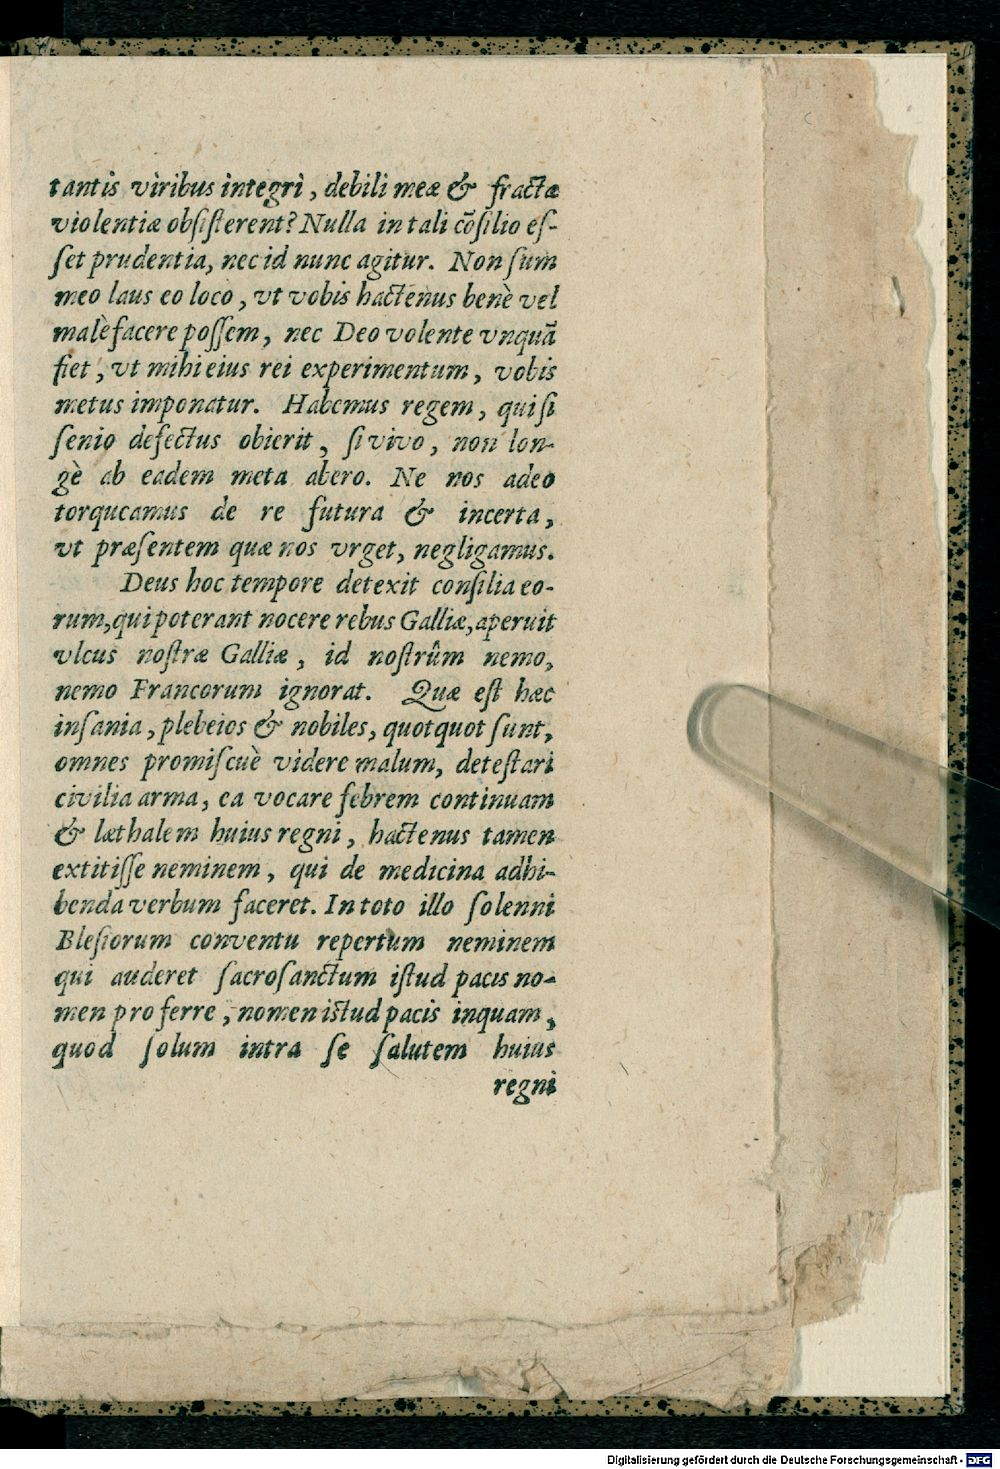 tantis viribus integri, debili meæ & fractæ
violentiæ obsisterent? Nulla in tali cõsilio es-
set prudentia, nec id nunc agitur. Non sum
meo laus eo loco, vt vobis hactenus benè vel
malè facere possem, nec Deo volente vnquã
fiet, vt mihi eius rei experimentum, vobis
metus imponatur. Habemus regem, qui si
senio defectus obierit, si vivo, non lon-
gè ab eadem meta abero. Ne nos adeo
torqueamus de re futura & incerta,
vt præsentem quæ nos vrget, negligamus.
Deus hoc tempore detexit consilia eo-
rum, qui poterant nocere rebus Galliæ, aperuit
vlcus nostræ Galliæ, id nostrûm nemo,
nemo Francorum ignorat. Quæ est hæc
insania, plebeios & nobiles, quotquot sunt,
omnes promiscuè videre malum, detestari
civilia arma, ea vocare febrem continuam
& læthalem huius regni, hactenus tamen
extitisse neminem, qui de medicina adhi-
benda verbum faceret. In toto illo solenni
Blesiorum conventu repertum neminem
qui auderet sacrosanctum istud pacis no-
men proferre, nomen istud pacis inquam,
quod solum intra se salutem huius
regni
Digitalisierung gefördert durch die Deutsche Forschungsgemeinschaft - DFG